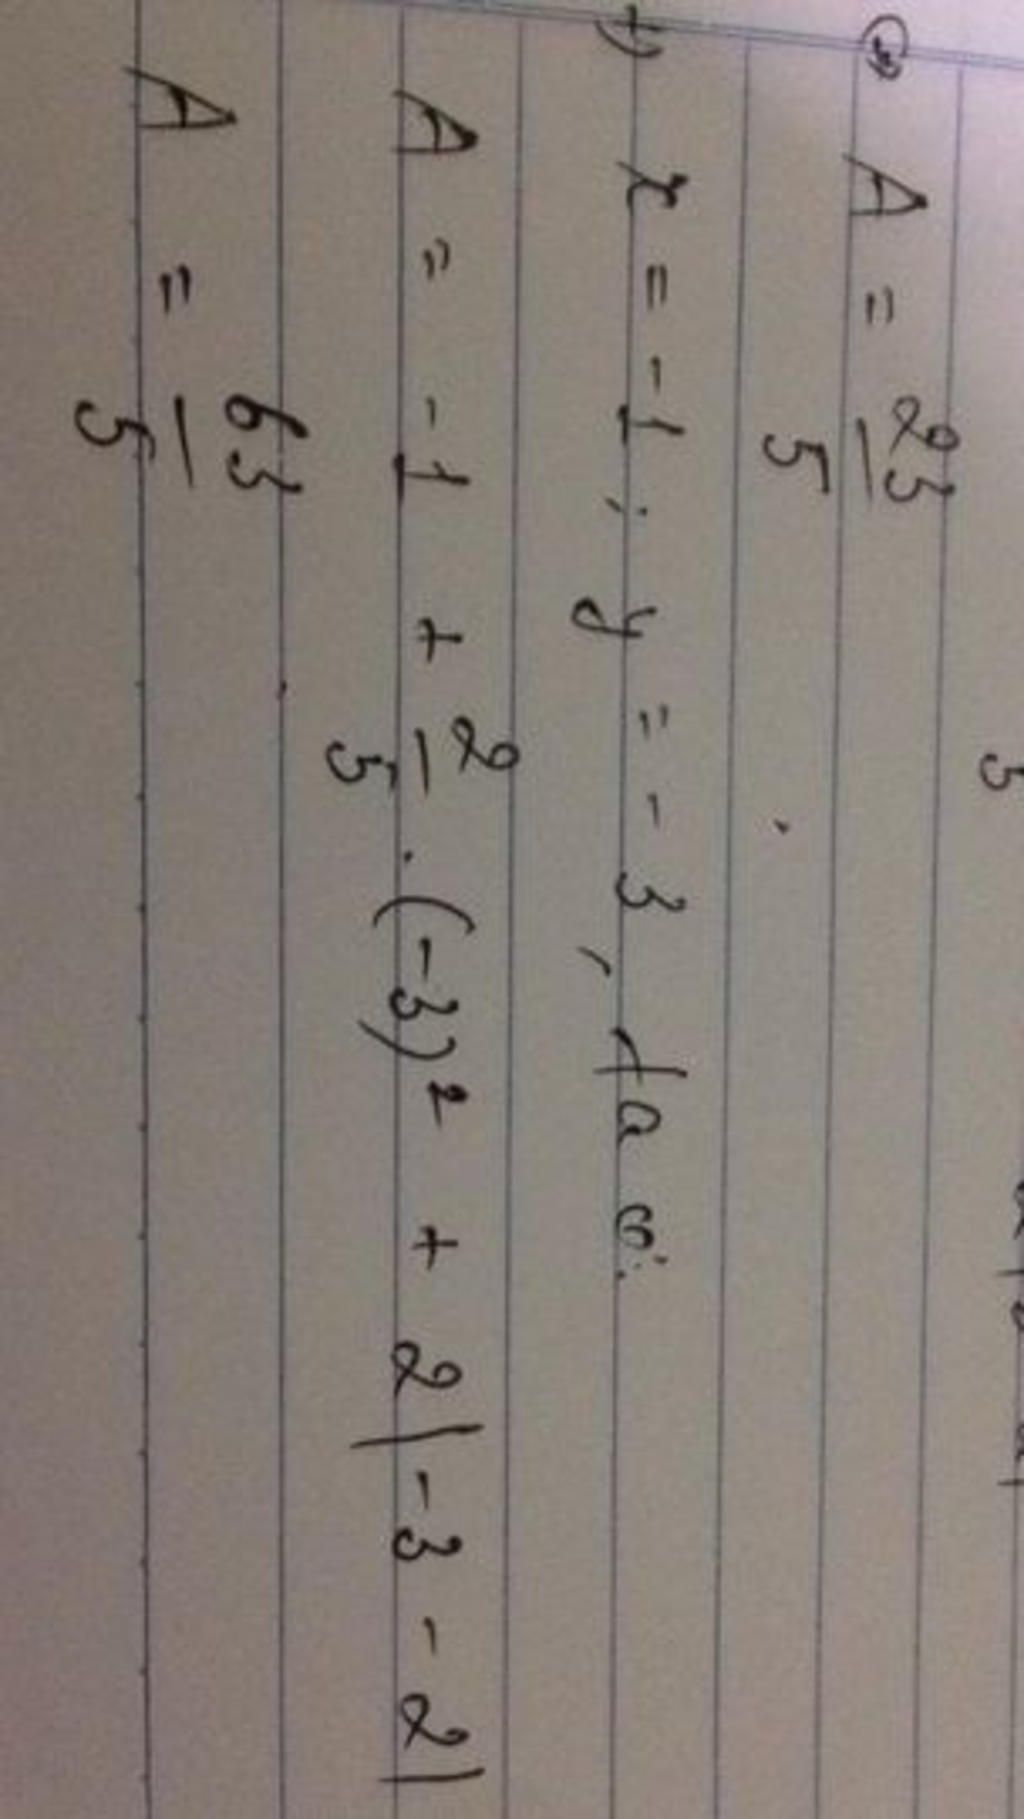 ⇔ A = 23/5
+) x = -1; y = -3, ta có:
A = -1 + 2/5 . (-3)² + 2|-3 - 2|
A = 63/5